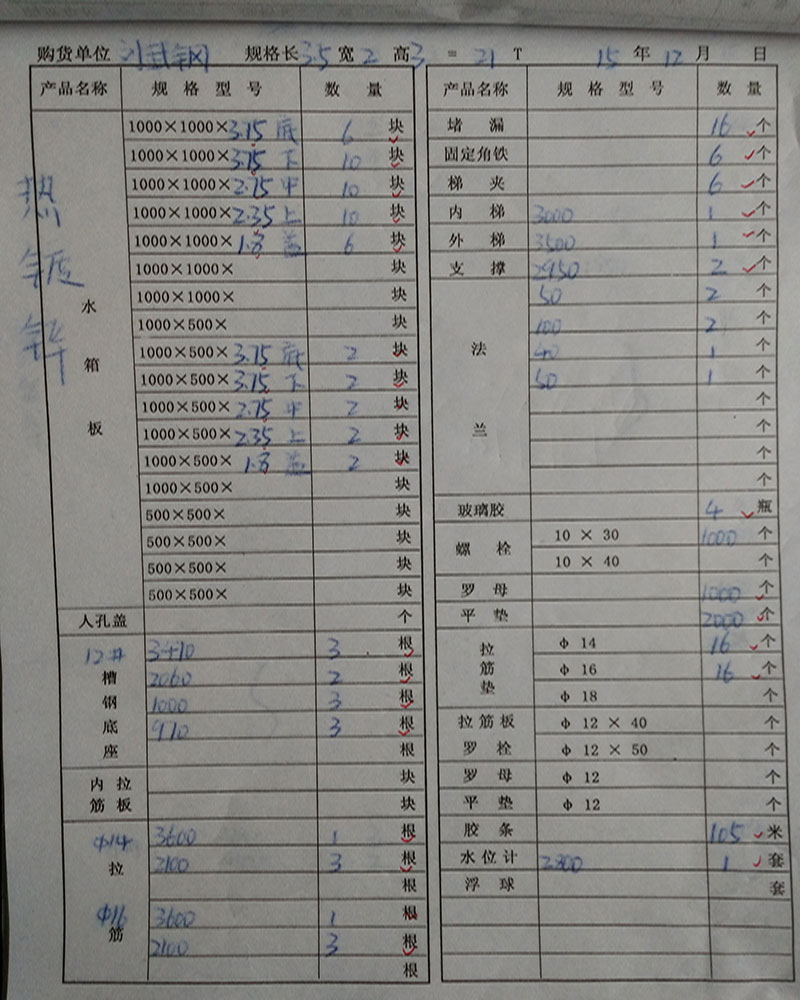 购货单位 刘武钢 规格长 3.5 宽 2 高 3 = 21 T 15 年 12 月 日
产品名称 规格型号 数量
热镀锌
水箱板
1000×1000×3.75 底 6 块
1000×1000×3.75 下 10 块
1000×1000×2.75 中 10 块
1000×1000×2.35 上 10 块
1000×1000×1.8 盖 6 块
1000×1000× 块
1000×1000× 块
1000×500× 块
1000×500×3.75 底 2 块
1000×500×3.75 下 2 块
1000×500×2.75 中 2 块
1000×500×2.35 上 2 块
1000×500×1.8 盖 2 块
1000×500× 块
500×500× 块
500×500× 块
500×500× 块
500×500× 块
人孔盖 个
12# 槽钢底座
3 根
2060 2 根
1000 3 根
970 3 根
根
内拉筋板
块
块
Φ14 拉筋
3600 1 根
2100 3 根
根
Φ16
3600 1 根
2100 3 根
根
产品名称 规格型号 数量
堵漏 16 个
固定角铁 6 个
梯夹 6 个
内梯 3000 1 个
外梯 3500 1 个
支撑 2950 2 个
法兰
50 2 个
100 2 个
40 1 个
50 1 个
个
个
个
个
玻璃胶 4 瓶
螺栓
10×30 1000 个
10×40 个
罗母 1000 个
平垫 2000 个
拉筋垫
Φ14 16 个
Φ16 16 个
Φ18 个
拉筋板罗栓
Φ12×40 个
Φ12×50 个
罗母 Φ12 个
平垫 Φ12 个
胶条 105 米
水位计 2800 1 套
浮球 套